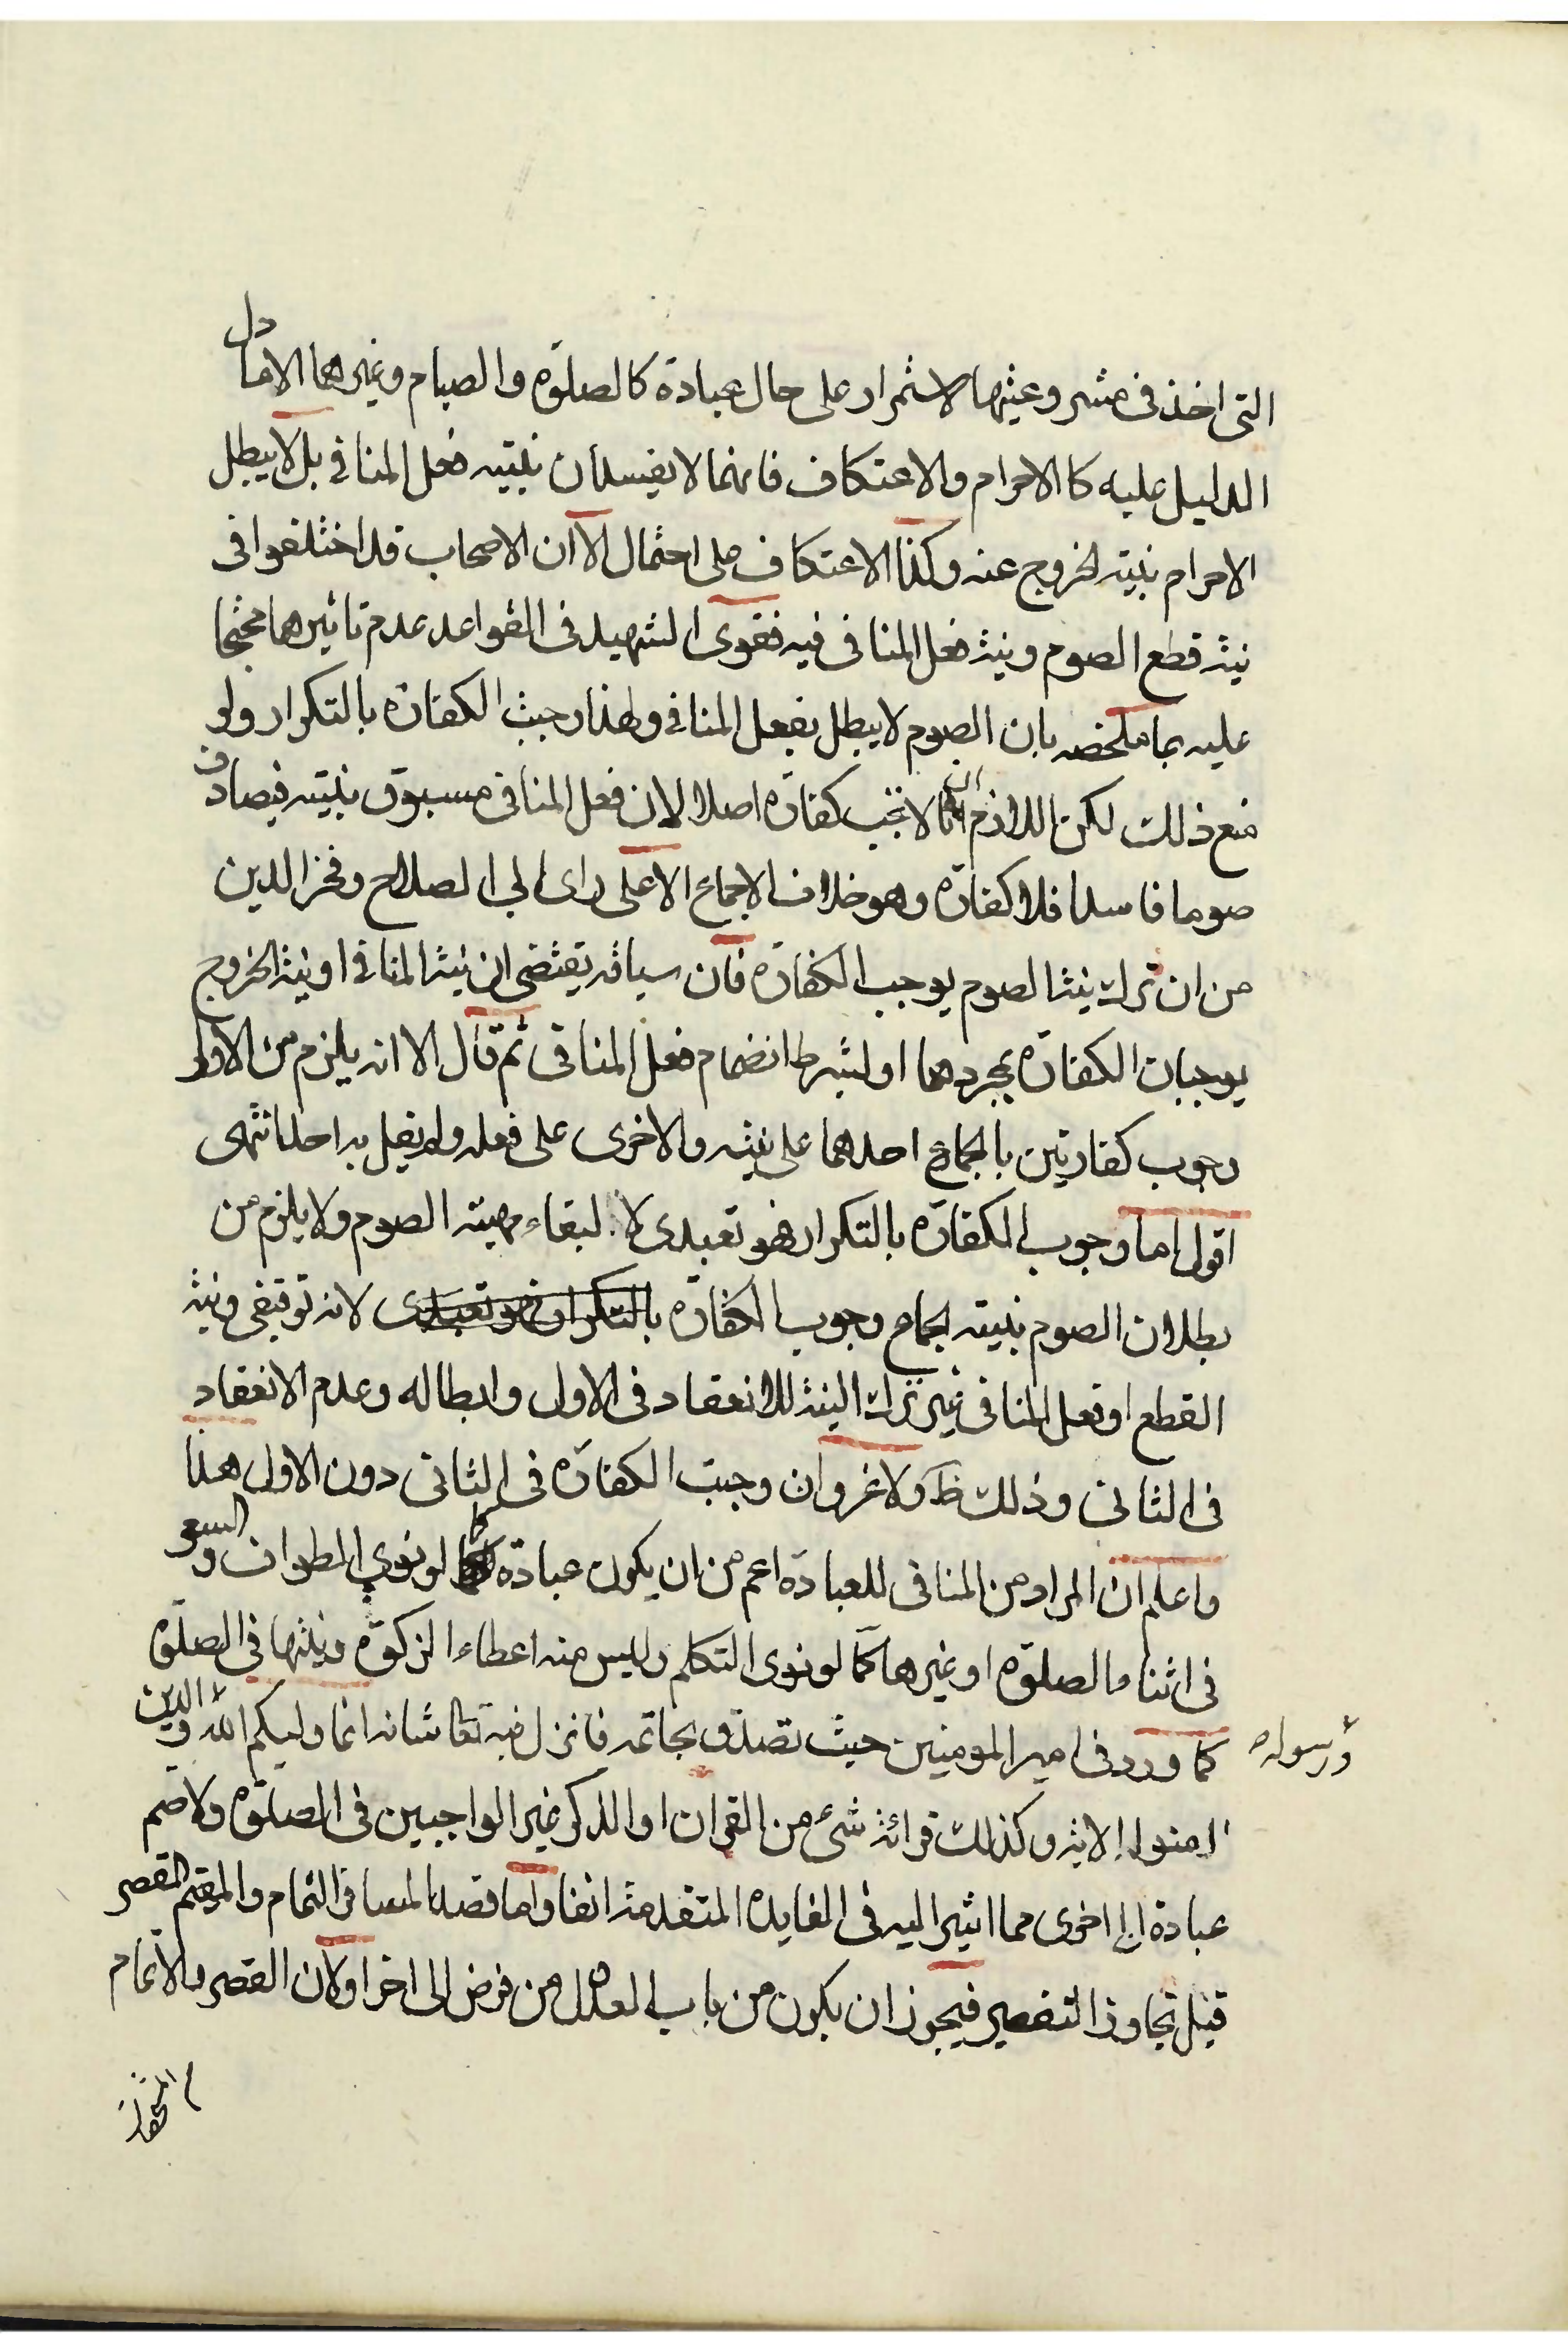 التى اخذ فى مشروعيتها الاستمرار على حال عبادة كالصلوة والصيام وغيرهما الا ما دل
الدليل عليه كالاحرام والاعتكاف فانهما لا يفسدان بنيته فعل المنافى بل لا يبطل
الاحرام بنيته الخروج عنه وكذا الاعتكاف على احتمال الا ان الاصحاب قد اختلفوا فى
نية قطع الصوم ونية فعل المنافى فيه فقوى الشهيد فى القواعد عدم تاثيرهما محتجا
عليه بما ملخصه بان الصوم لا يبطل بفعل المنافى ولهذا وجبت الكفارة بالتكرار ولو
منع ذلك لكن اللازم ان لا تجب كفارة اصلا لان فعل المنافى مسبوق بنيته فيصادف
صوما فاسدا فلا كفارة وهو خلاف الاجماع الا على راى ابى الصلاح وفخر الدين
من ان ترك نية الصوم يوجب الكفارة فان سياقه يقتضى ان نية المنافى او نية الخروج
يوجبان الكفارة بمجردهما او بشرط انضمام فعل المنافى ثم قال الا انه يلزم من الاول
وجوب كفارتين بالجماع احدهما على نيته والاخرى على فعله ولم يقل به احد انتهى
اقول اما وجوب الكفارة بالتكرار فهو تعبدى لا لبقاء مهيته الصوم ولا يلزم من
بطلان الصوم بنيته الجماع وجوب الكفارة بالتكرار فهو تعبدى لانه توقيفى ونية
القطع او فعل المنافى غير ترك النية للانعقاد فى الاول وابطاله وعدم الانعقاد
فى الثانى وذلك ظ ولا غرو ان وجبت الكفارة فى الثانى دون الاول هذا
واعلم ان المراد من المنافى للعبادة اعم من ان يكون عبادة كما لو نوى الطواف والسعى
فى اثناء الصلوة او غيرها كما لو نوى التكلم وليس منه اعطاء الزكوة ونيتها فى الصلوة
كما ورد فى امير المومنين حيث تصدق بخاتمه فانزل فيه تعا شانه انما وليكم الله ورسوله والذين
امنوا الاية وكذلك قرائة شىء من القران او الذكر غير الواجبين فى الصلوة ولا ضم
عبادة الى اخرى مما اشير اليه فى الفايدة المتقدمة انفا واما قصد المسافر التمام والمقيم القصر
قبل تجاوز التقصير فيجوز ان يكون من باب العدل من فرض الى اخر او لان القصر والاتمام